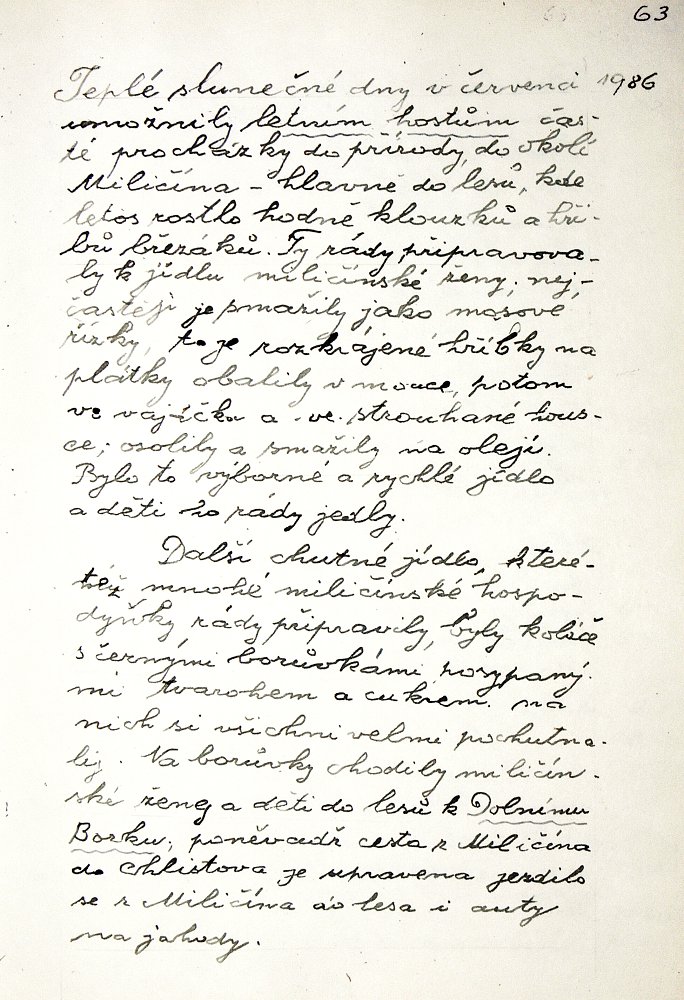 63
Teplé slunečné dny v červenci 1986
umožnily letním hostům čas-
té procházky do přírody, do okolí
Miličína - hlavně do lesů, kde
letos rostlo hodně klouzků a hři-
bů březáků. Ty rády připravova-
ly k jídlu miličínské ženy, nej-
častěji je smažily jako masové
řízky, to je rozkrájené hříbky na
plátky obalily v mouce, potom
ve vajíčku a ve strouhané hous-
ce; osolily a smažily na oleji.
Bylo to výborné a rychlé jídlo
a děti ho rády jedly.
Další chutné jídlo, které-
též mnohé miličínské hospo-
dyňky rády připravily, byly koláče
s černými borůvkámi posypaný-
mi tvarohem a cukrem. na
nich si všichni velmi pochutna-
li. Na borůvky chodily miličín-
ské ženy a děti do lesů k Dolnímu
Borku, poněvadž cesta z Miličína
do Chlistova je upravena jezdilo
se z Miličína do lesa i auty
na jahody.